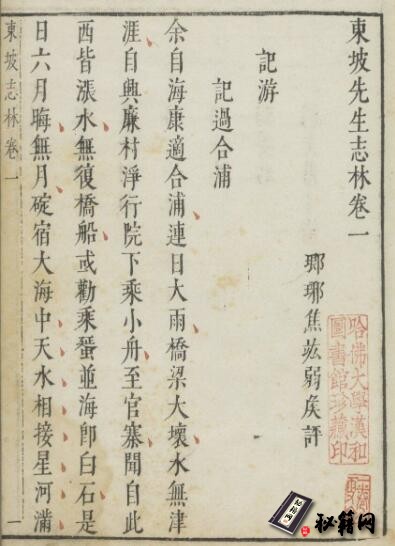 東坡先生志林卷一
瑯琊焦竑弱矦評
記游
記過合浦
余自海康適合浦連日大雨橋梁大壞水無津
涯自興廉村淨行院下乘小舟至官寨聞自此
西皆漲水無復橋船或勸乘蜑並海卽白石是
日六月晦無月碇宿大海中天水相接星河滿
東坡志林卷一
一
哈佛大學漢和
圖書館珍藏印
秘籍网